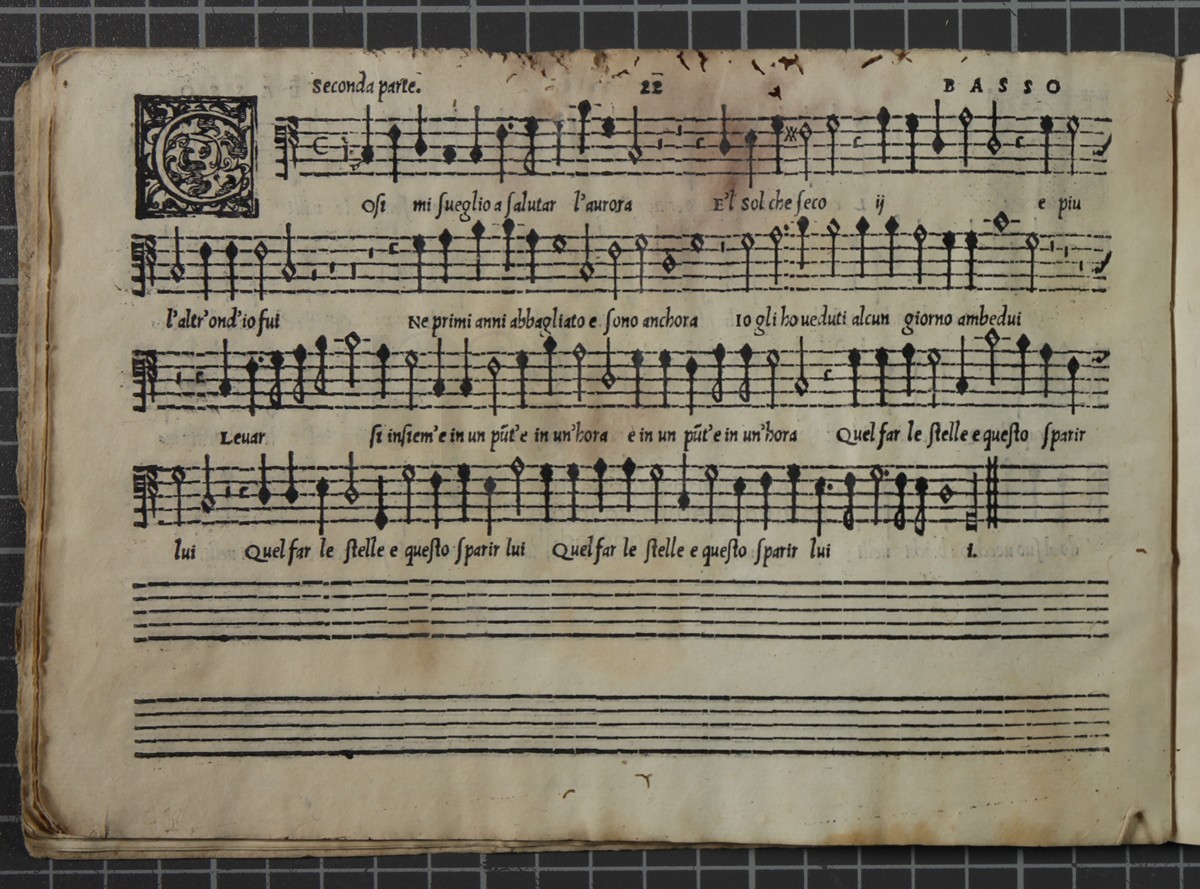 Seconda parte. 22 BASSO
COsi mi sueglio a salutar l'aurora E'l Sol che seco ij e piu
l'altr'ond'io fui Ne primi anni abbagliato e sono anchora Io gli ho ueduti alcun giorno ambedui
Leuar si insiem'e in un pũt'e in un'hora e in un pũt'e in un'hora Quel far le stelle e questo sparir
lui Quel far le stelle e questo sparir lui Quel far le stelle e questo sparir lui i.